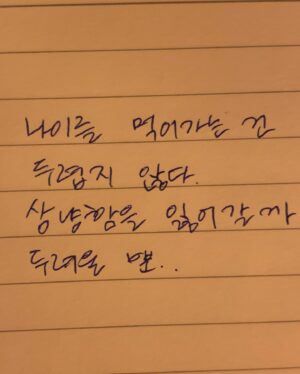 나이를 먹어가는 건
두렵지 않다.
상냥함을 잃어갈까
두려울 뿐..